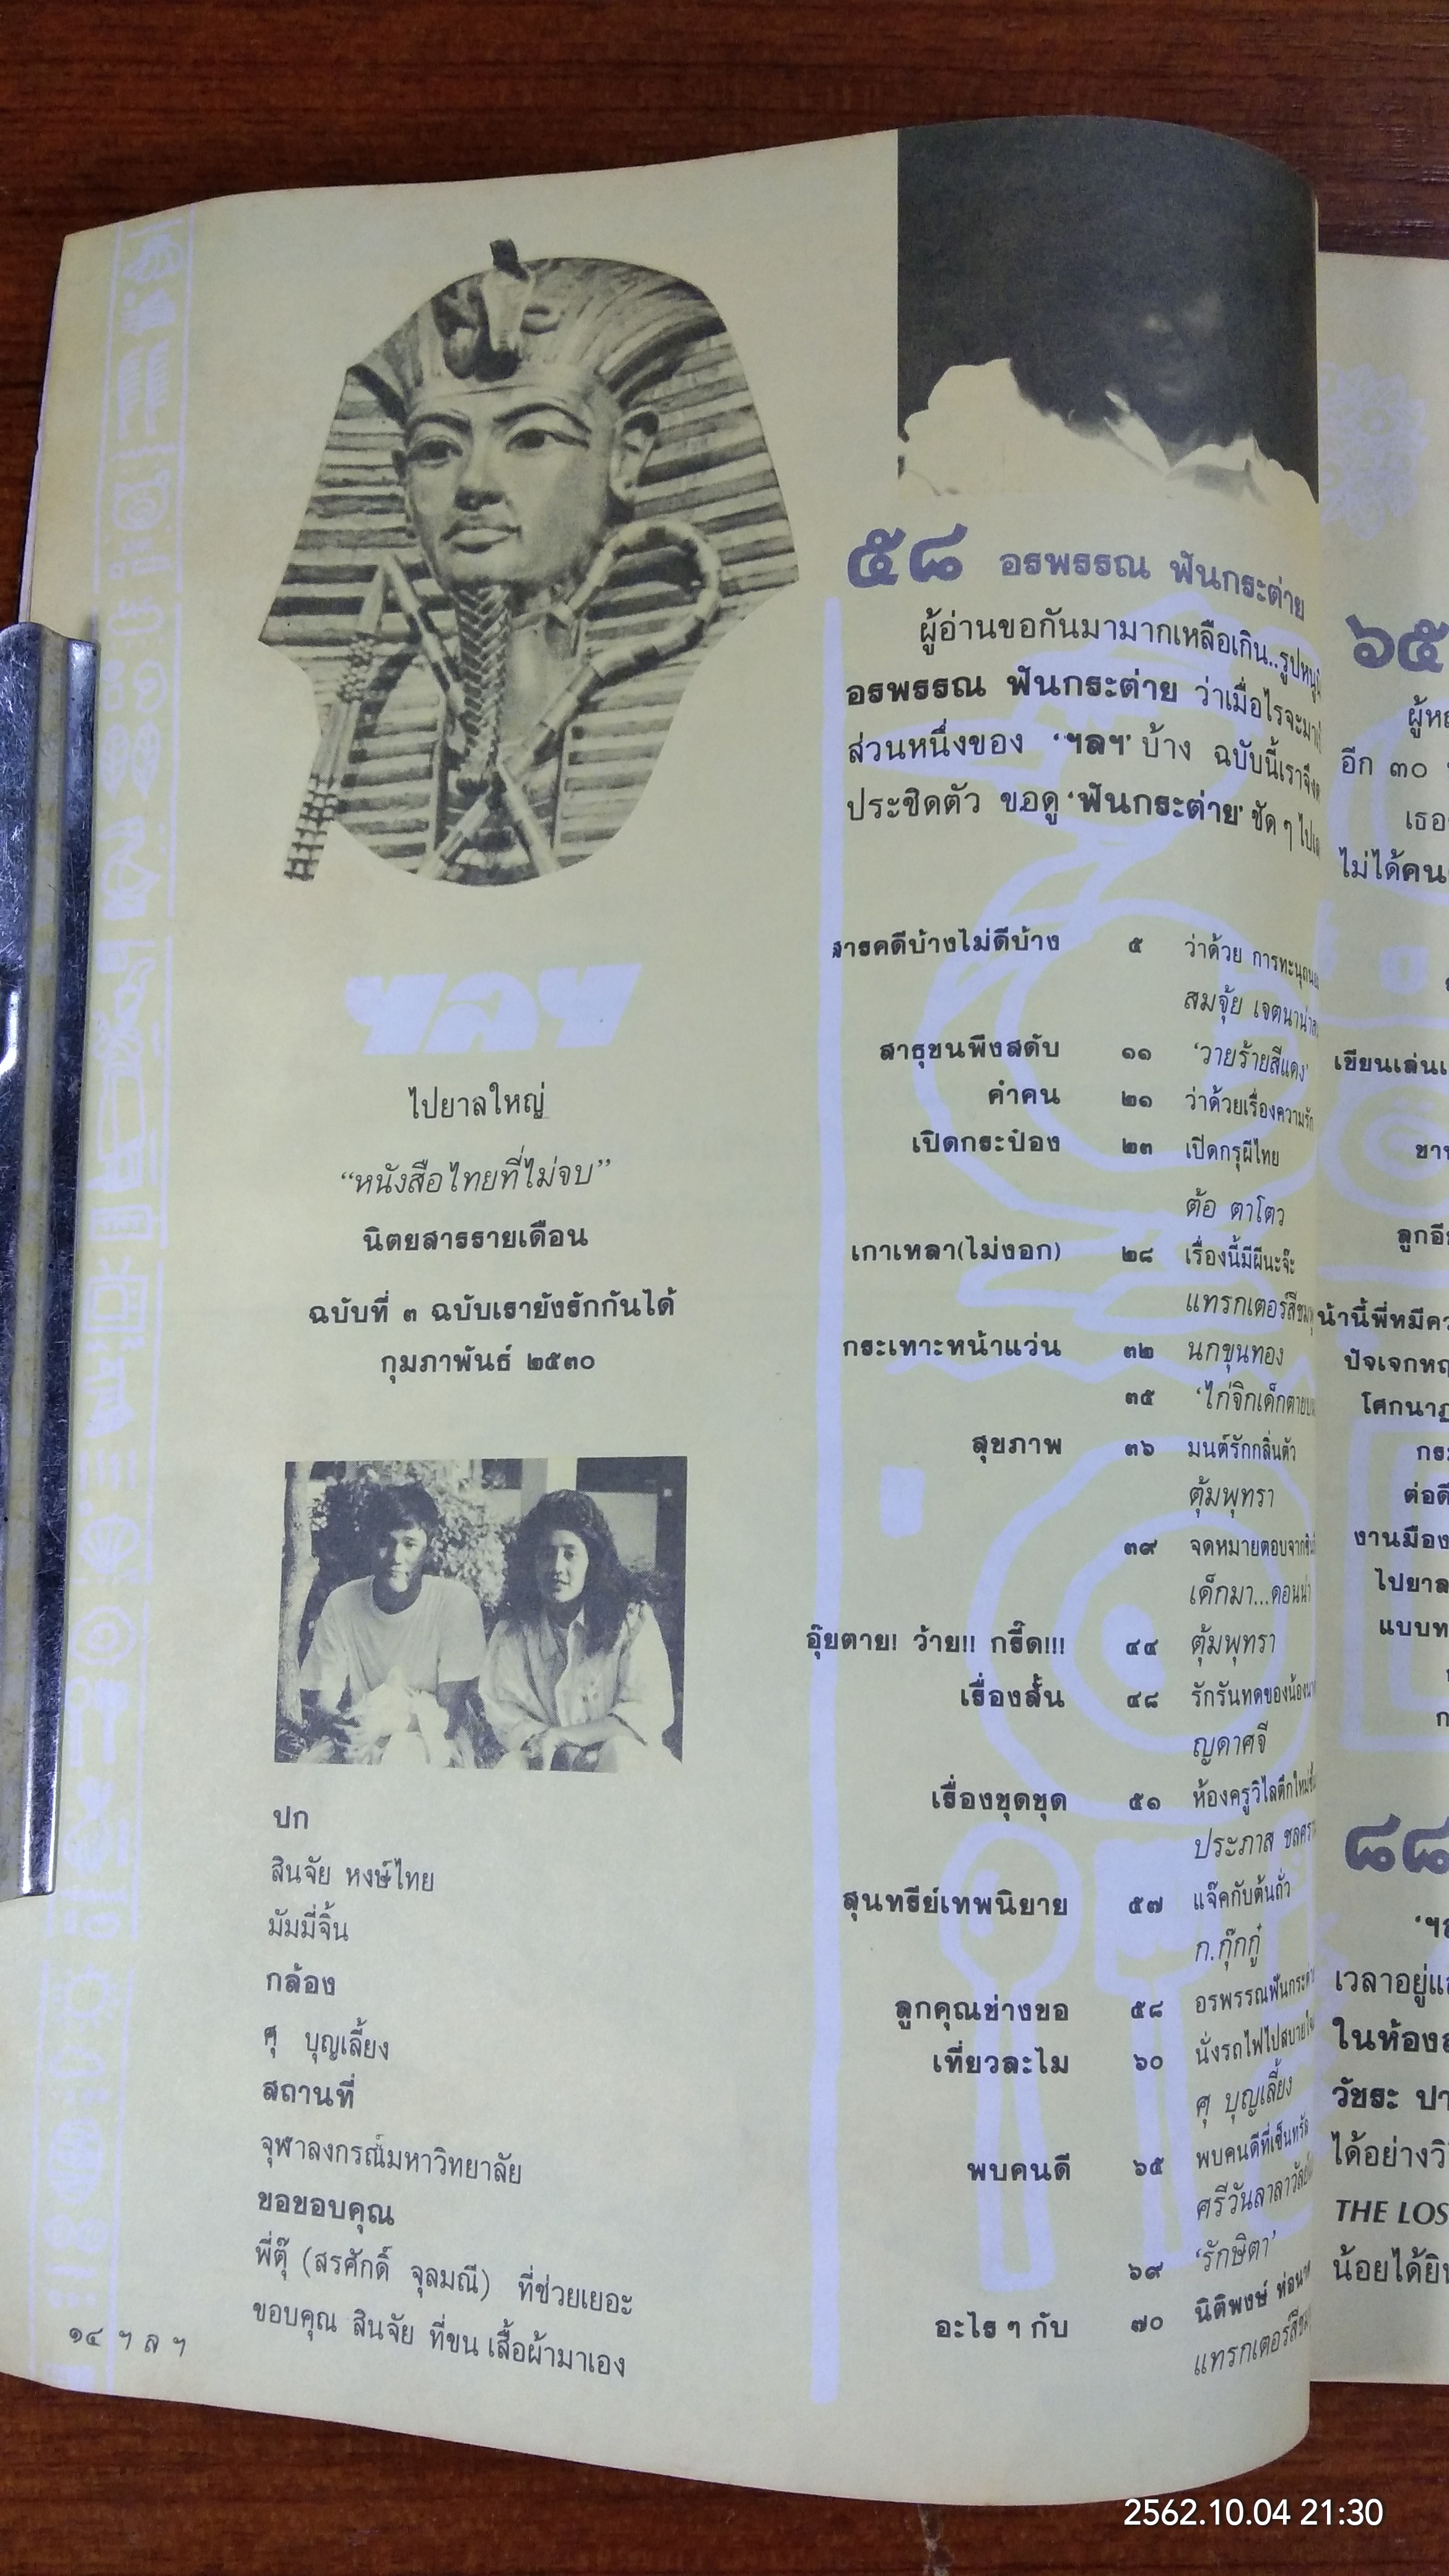 ฯลฯ
ไปยาลใหญ่
“หนังสือไทยที่ไม่จบ”
นิตยสารรายเดือน
ฉบับที่ ๓ ฉบับเรายังรักกันได้
กุมภาพันธ์ ๒๕๓๐
ปก
สินจัย หงษ์ไทย
มัมมี่จิ้น
กล้อง
ศุ บุญเลี้ยง
สถานที่
จุฬาลงกรณ์มหาวิทยาลัย
ขอขอบคุณ
พี่ตุ๊ (สรศักดิ์ จุลมณี) ที่ช่วยเยอะ
ขอบคุณ สินจัย ที่ขน เสื้อผ้ามาเอง
๑๔ ฯ ล ฯ
๕๘ อรพรรณ ฟันกระต่าย
ผู้อ่านขอกันมามากเหลือเกิน..รูปหนู
อรพรรณ ฟันกระต่าย ว่าเมื่อไรจะมา
ส่วนหนึ่งของ ‘ฯลฯ’ บ้าง ฉบับนี้เราจึง
ประชิดตัว ขอดู ‘ฟันกระต่าย’ ชัด ๆ
สารคดีบ้างไม่ดีบ้าง ๕ ว่าด้วย การทะนุถนอม
สมจุ้ย เจตนาน่า
สาธุขนพึงสดับ ๑๑ ‘วายร้ายสีแดง’
คำคน ๒๑ ว่าด้วยเรื่องความรัก
เปิดกระป๋อง ๒๓ เปิดกรุผีไทย
ต้อ ตาโตว
เกาเหลา(ไม่งอก) ๒๘ เรื่องนี้มีผีนะจ๊ะ
แทรกเตอร์สีชมพู
กระเทาะหน้าแว่น ๓๒ นกขุนทอง
๓๕ ‘ไก่จิกเด็กตายบน
สุขภาพ ๓๖ มนต์รักกลิ่นตัว
ตุ้มพุทรา
๓๙ จดหมายตอบจาก
เด็กมา...ดอนน่า
อุ๊ยตาย! ว้าย!! กรี๊ด!!! ๔๔ ตุ้มพุทรา
เรื่องสั้น ๔๘ รักรันทดของน้อง
ญดาศจี
เรื่องขุดขุด ๕๑ ห้องครูวิไลตึกใหม่
ประภาส ชลศรา
สุนทรีย์เทพนิยาย ๕๗ แจ๊คกับต้นถั่ว
ก.กุ๊กกู๋
ลูกคุณช่างขอ ๕๘ อรพรรณฟันกระต่าย
เที่ยวละไม ๖๐ นั่งรถไฟไปสบาย
ศุ บุญเลี้ยง
พบคนดี ๖๕ พบคนดีที่เซ็นทรัล
ศรีวันลาลาวัลย์
๖๙ ‘รักษิตา’
อะไร ๆ กับ ๗๐ นิติพงษ์ ห่อนาค
แทรกเตอร์สีชมพู
๖๕
อีก ๓๐
เธอ
ไม่ได้คน
เขียนเล่น
ลูกอี
น้านี้พี่หมี
ปัจเจกหฤ
โศกนาฏ
ต่อดี
งานมือง
ไปยาล
แบบท
๘๘
เวลาอยู่แ
ในห้อง
วัชระ ปา
ได้อย่างวิ
THE LOS
น้อยได้ยิน
2562.10.04 21:30